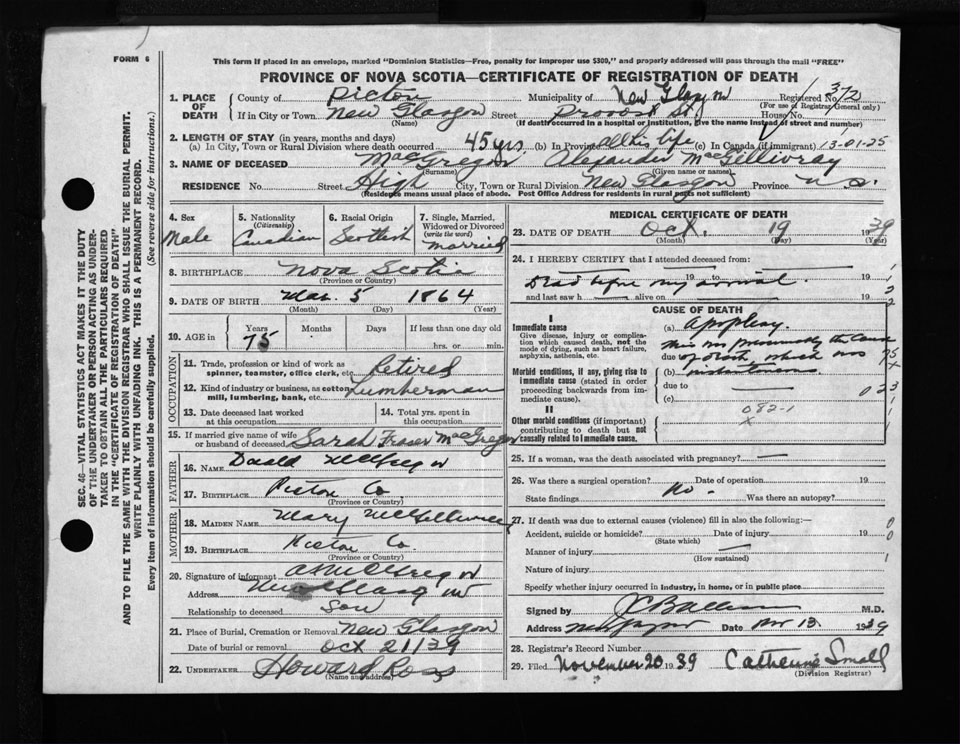 FORM 6
This form if placed in an envelope, marked "Dominion Statistics—Free, penalty for improper use $300," and properly addressed will pass through the mail "FREE"
PROVINCE OF NOVA SCOTIA—CERTIFICATE OF REGISTRATION OF DEATH
1. PLACE OF DEATH County of Pictou Municipality of New Glasgow Registered No. 372
(For use of Registrar General only)
If in City or Town New Glasgow Street Provost St. House No.
(Name) (If death occurred in a hospital or institution, give the name instead of street and number)
2. LENGTH OF STAY (in years, months and days)
(a) In City, Town or Rural Division where death occurred 45 yrs (b) In Province all his life (c) In Canada (if immigrant) 13-01-25
3. NAME OF DECEASED MacGregor Alexander MacGillivray
(Surname) (Given name or names)
RESIDENCE No. Street High City, Town or Rural Division New Glasgow Province N.S.
(Residence means usual place of abode. Post Office Address for Residents in rural parts not sufficient)
4. Sex Male
5. Nationality (Citizenship) Canadian
6. Racial Origin Scottish
7. Single, Married, Widowed or Divorced (write the word) married
8. BIRTHPLACE Nova Scotia
(Province or Country)
9. DATE OF BIRTH Mar. 5 1864
(Month) (Day) (Year)
10. AGE in Years 75 Months Days If less than one day old hrs. or min.
OCCUPATION
11. Trade, profession or kind of work as spinner, teamster, office clerk, etc. Retired
12. Kind of industry or business, as cotton mill, lumbering, bank, etc. Lumberman
13. Date deceased last worked at this occupation
14. Total yrs. spent in this occupation
15. If married give name of wife or husband of deceased Sarah Fraser MacGregor
FATHER
16. NAME Donald McGregor
17. BIRTHPLACE Pictou Co.
(Province or Country)
MOTHER
18. MAIDEN NAME Mary McGillivray
19. BIRTHPLACE Pictou Co.
(Province or Country)
20. Signature of informant McGregor
Address New Glasgow NS
Relationship to deceased Son
21. Place of Burial, Cremation or Removal New Glasgow
Date of burial or removal Oct 21/39
22. UNDERTAKER Howard Ross
(Name and address)
MEDICAL CERTIFICATE OF DEATH
23. DATE OF DEATH Oct. 19 1939
(Month) (Day) (Year)
24. I HEREBY CERTIFY that I attended deceased from:
19 to 19
Dead before my arrival.
and last saw h alive on 19
CAUSE OF DEATH
I
Immediate cause
Give disease, injury or complication which caused death, not the mode of dying, such as heart failure, asphyxia, asthenia, etc.
(a) Apoplexy.
This was presumably the cause
due of death, which was
(b) instantaneous
Morbid conditions, if any, giving rise to immediate cause (stated in order proceeding backwards from immediate cause).
due to
(c)
II
Other morbid conditions (if important) contributing to death but not causally related to immediate cause.
082-1
x
25. If a woman, was the death associated with pregnancy?
26. Was there a surgical operation? Date of operation 19
State findings No. Was there an autopsy?
27. If death was due to external causes (violence) fill in also the following:—
Accident, suicide or homicide? Date of injury 19
(State which)
Manner of injury
(How sustained)
Nature of injury
Specify whether injury occurred in industry, in home, or in public place
Signed by M.D.
Address New Glasgow Date Nov 13 1939
28. Registrar's Record Number
29. Filed November 20 1939 Catherine Small
(Division Registrar)
SEC. 46—VITAL STATISTICS ACT MAKES IT THE DUTY OF THE UNDERTAKER OR PERSON ACTING AS UNDERTAKER TO OBTAIN ALL THE PARTICULARS REQUIRED IN THE "CERTIFICATE OF REGISTRATION OF DEATH"
AND TO FILE THE SAME WITH THE DIVISION REGISTRAR WHO SHALL ISSUE THE BURIAL PERMIT.
WRITE PLAINLY WITH UNFADING INK. THIS IS A PERMANENT RECORD.
Every item of information should be carefully supplied. (See reverse side for instructions.)